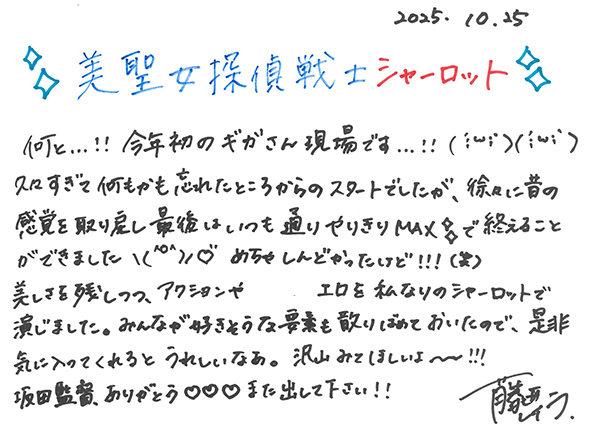 2025. 10.25
美聖女探偵戦士シャーロット
何と…!! 今年初のギガさん現場です…!! (´;ω;`)(´;ω;`)
久々すぎて何もかも忘れたところからのスタートでしたが、徐々に昔の
感覚を取り戻し最後はいつも通りやりきりMAXで終えること
ができました \(^o^)/♡ めちゃしんどかったけど!!! (笑)
美しさを残しつつ、アクションや エロを私なりのシャーロットで
演じました。みんなが好きそうな要素も散りばめておいたので、是非
気に入ってくれるとうれしいなあ。沢山みてほしいよ〜!!!
坂田監督、ありがとう♡♡♡ また出して下さい!!